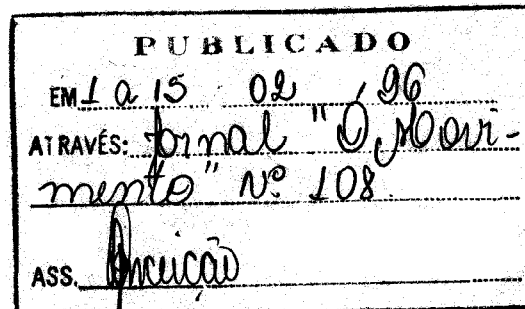 PUBLICADO
EM 1 a 15 02 96
ATRAVÉS: Jornal "O Movi-
mento" Nº 108
ASS. Conceição